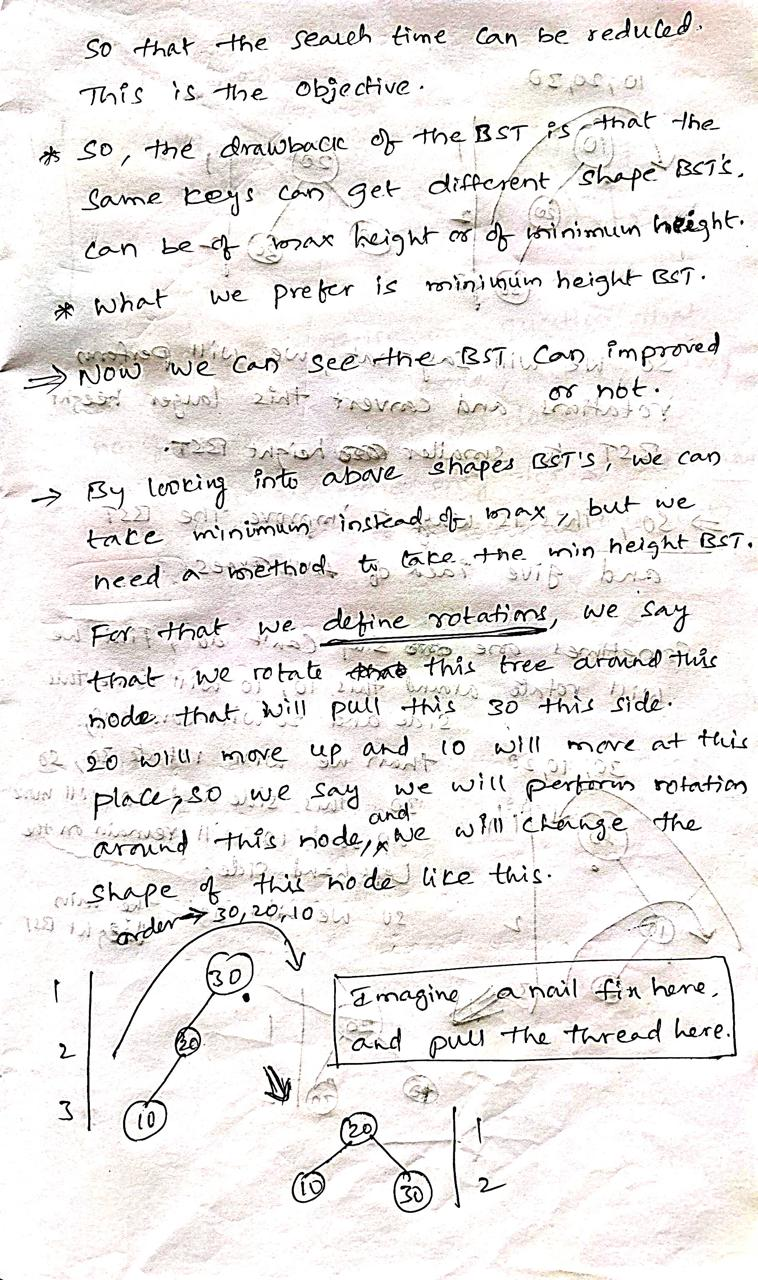 So that the search time can be reduced.
This is the objective.
* So, the drawback of the BST is that the
same keys can get different shape BST's.
can be of max height or of minimum height.
* What we prefer is minimum height BST.
⇒ Now we can see the BST can improved
or not.
→ By looking into above shapes BST's, we can
take minimum instead of max, but we
need a method to take the min height BST.
For that we define rotations, we say
that we rotate that this tree around this
node that will pull this 30 this side.
20 will move up and 10 will move at this
place, so we say we will perform rotation
around this node, and we will change the
shape of this node like this.
order → 30, 20, 10
1
2
3
30
20
10
Imagine a nail fix here,
and pull the thread here.
20
10
30
1
2